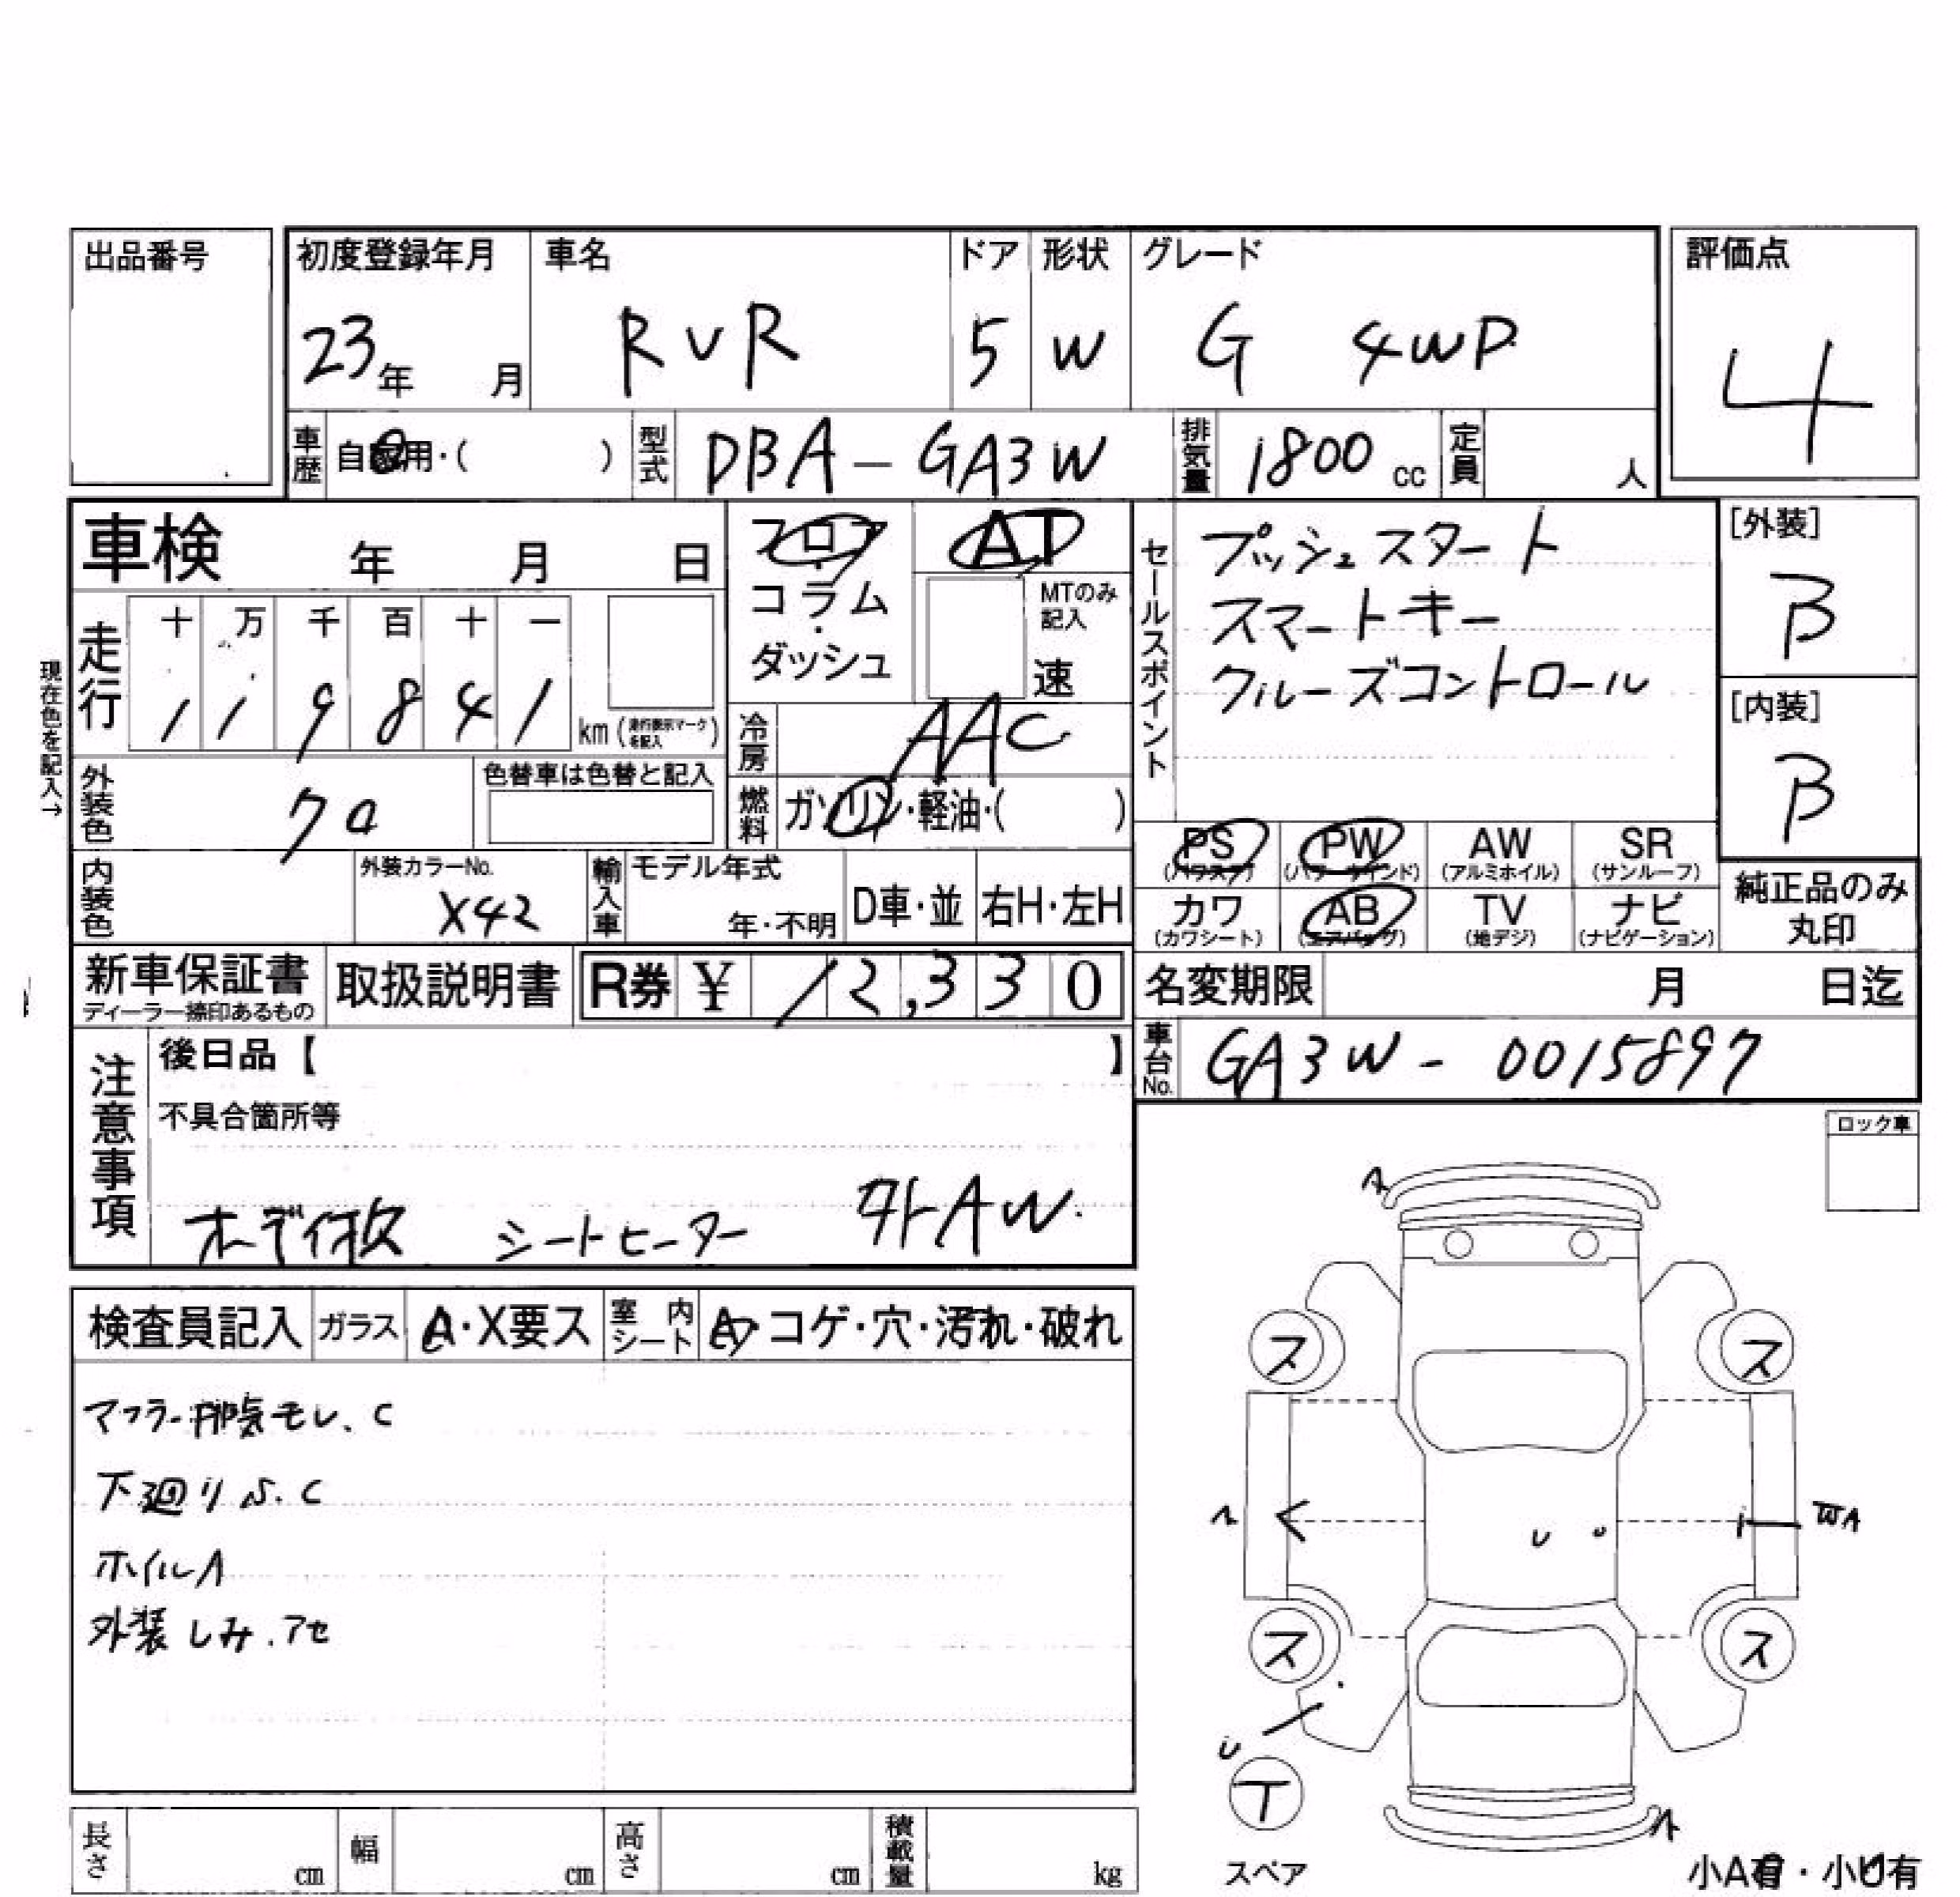 出品番号
初度登録年月 車名 ドア 形状 グレード 評価点
23年 月 RVR 5 W G 4WD 4
車歴 自家用・( ) 型式 DBA-GA3W 排気量 1800cc 定員 人
車検 年 月 日
フロア・コラム・ダッシュ
AT
MTのみ記入
速
セールスポイント
プッシュスタート
スマートキー
クルーズコントロール
[外装]
B
[内装]
B
現在色を記入→
走行 十 万 千 百 十 一
1 1 9 8 4 1 km(走行表示マークを記入)
冷房 AAC
外装色 クロ 色替車は色替と記入
燃料 ガソリン・軽油・( )
PS(パワステ) PW(パワーウインド) AW(アルミホイル) SR(サンルーフ)
内装色 外装カラーNo. X42 輸入車 モデル年式 年・不明 D車・並 右H・左H
カワ(カワシート) AB(エアバッグ) TV(地デジ) ナビ(ナビゲーション)
純正品のみ丸印
新車保証書 ディーラー捺印あるもの 取扱説明書 R券 ¥ 12,330
名変期限 月 日迄
車台No. GA3W-0015897
注意事項
後日品【 】
不具合箇所等
シートヒーター 外AW.
ロック車
検査員記入 ガラス A・X要ス 室内シート A・コゲ・穴・汚れ・破れ
マフラー排気モレ.C
下廻りS.C
ホイルA
外装しみ.アセ
ヌ
ス ス
ヘ
U
WA
ス ス
U
T
スペア
ヘ
長さ cm 幅 cm 高さ cm 積載量 kg
小A有・小U有